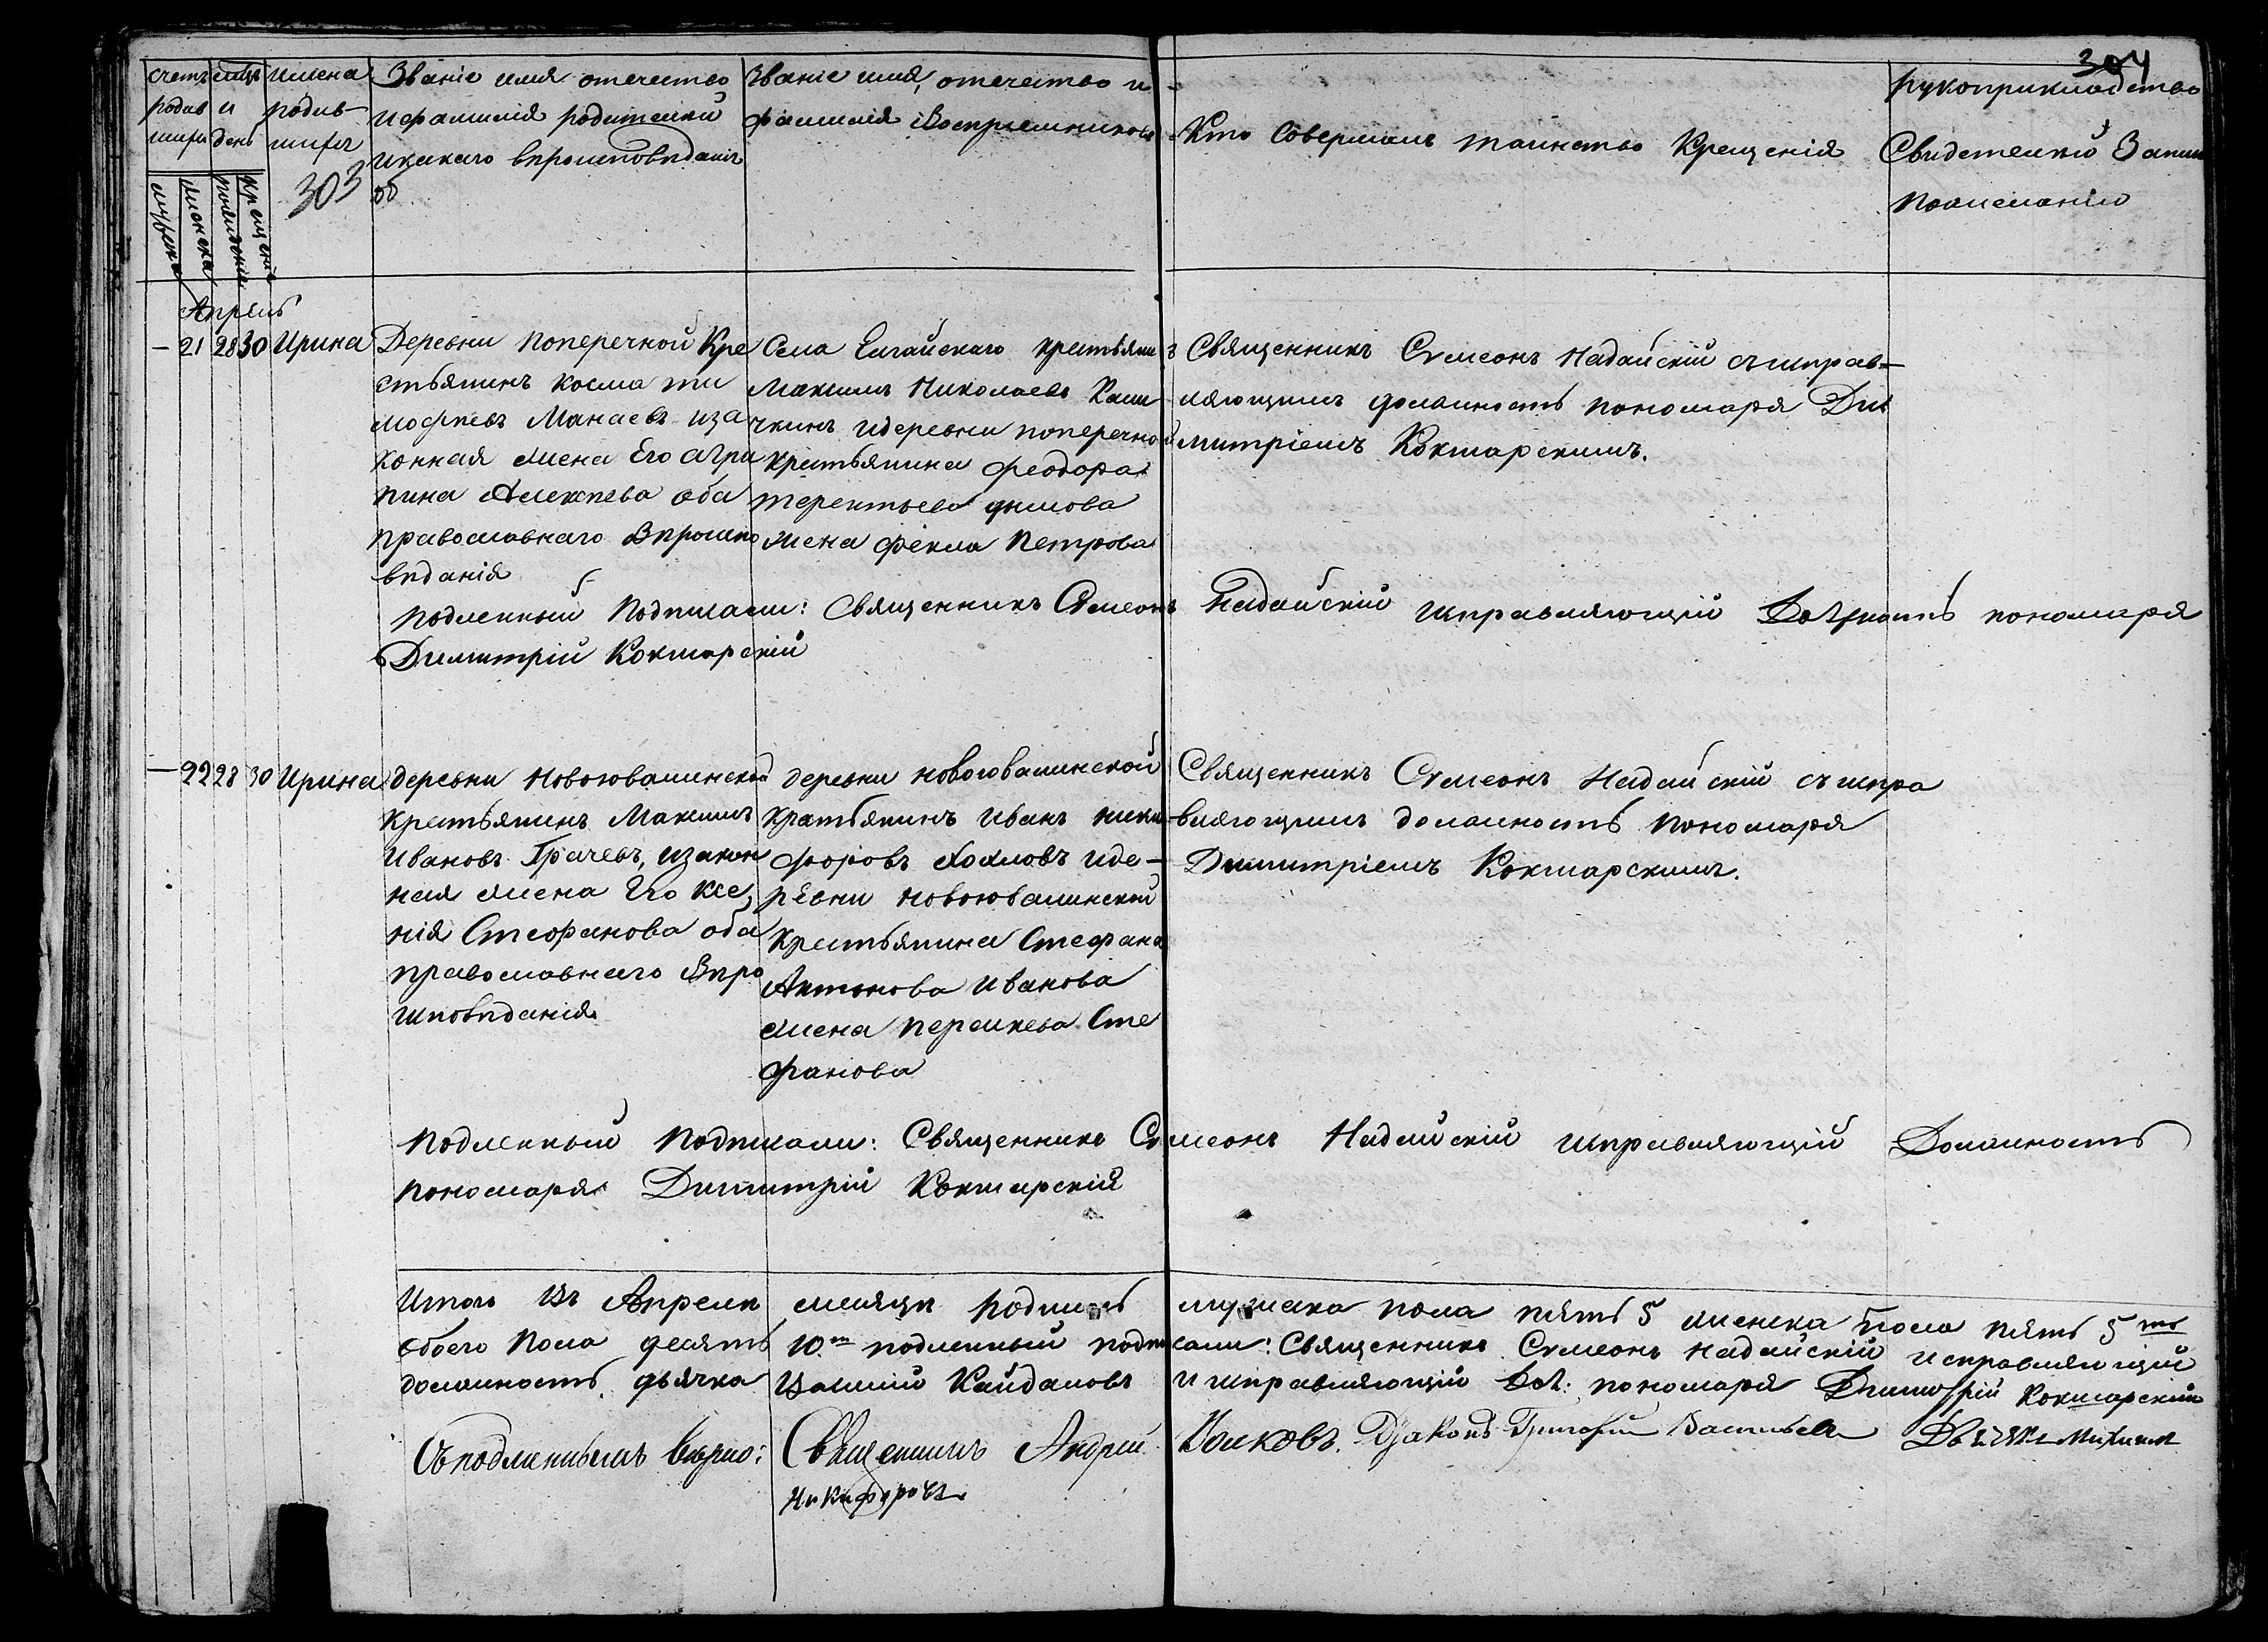 304
счетъ родившихся
мѣсяцъ и день
имена родившихся
303
Званіе имя отечество
и фамилія родителей
и какого вѣроисповѣданія
Званіе имя, отечество и
фамилія Воспріемниковъ
Кто Совершалъ таинство Крещенія
рукоприкладство
Свидетелей Записи
по желанію
мужеска
женска
рожденія
крещенія
Апрель
— 21 28 30 Ирина
Деревни Поперечной Кре
стьянинъ Косма ти
мофѣевъ Манаевъ иза
конная жена Его агри
пина Алексѣева оба
православнаго Вѣроиспо
вѣданія
Села Елгайскаго крестьянинъ
Максимъ Николаевъ Каши
чкинъ идеревни поперечной
крестьянина Феодора
терентьева дымова
жена фекла Петрова
Священникъ Сѵмеонъ Надайскій съ исправ-
ляющимъ должность пономаря Ди
митріемъ Кокшарскимъ.
Подленный Подписали: Священникъ Сѵмеонъ Надайскій Исправляющій Должность пономаря
Димитрій Кокшарскій
— 22 28 30 Ирина
деревни Новоювалинской
Крестьянинъ Максимъ
Ивановъ Грачевъ, изакон
ная жена Его ксе
нія Стефанова оба
православнаго Вѣро
исповѣданія
деревни новоювалинской
Крестьянинъ Иванъ ники
форовъ Хохловъ иде-
ревни новоювалинской
Крестьянина Стефана
Антонова Иванова
жена Сте
фанова
Священникъ Сѵмеонъ Надайскій съ испра
вляющимъ должность Пономаря
Димитріемъ Кокшарскимъ.
Подленный Подписали: Священникъ Сѵмеонъ Надайскій Исправляющій Должность
пономаря Димитрій Кокшарскій
Итого Въ Апрелѣ месяцѣ родилось мужска пола пять 5 женска пола пять 5
обоего Пола десять 10 подленный подписали: Священникъ Сѵмеонъ Надайскій исправляющій
должность дьячка Кайдаловъ и исправляющій дол: пономаря Димитрій Кокшарскій
Съ подлиннымъ вѣрно: Священникъ Андрей Волковъ. Дьяконъ Григорій Васильевъ Дьячекъ Михаилъ
Никифоровъ